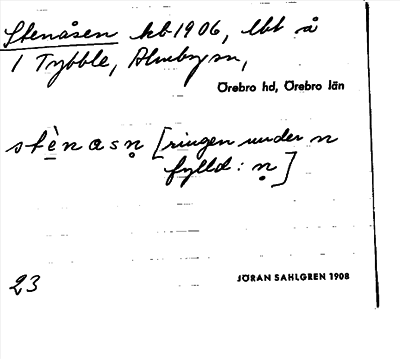 Stenåsen kb 1906, lbt å
1 Tybble, Almby sn,
Örebro hd, Örebro län
stè̠nasn̥ [ringen under n
fylld: n̥]
23
JÖRAN SAHLGREN 1908